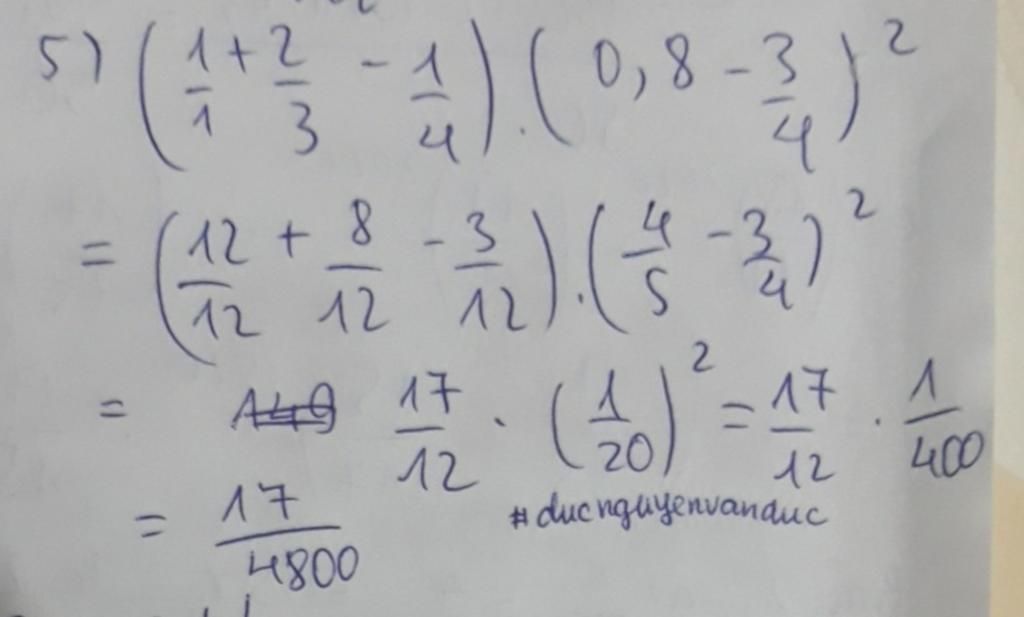 5) (1/1 + 2/3 - 1/4) . (0,8 - 3/4)²
= (12/12 + 8/12 - 3/12) . (4/5 - 3/4)²
= 17/12 . (1/20)² = 17/12 . 1/400
= 17/4800
#ducnguyenvanduc